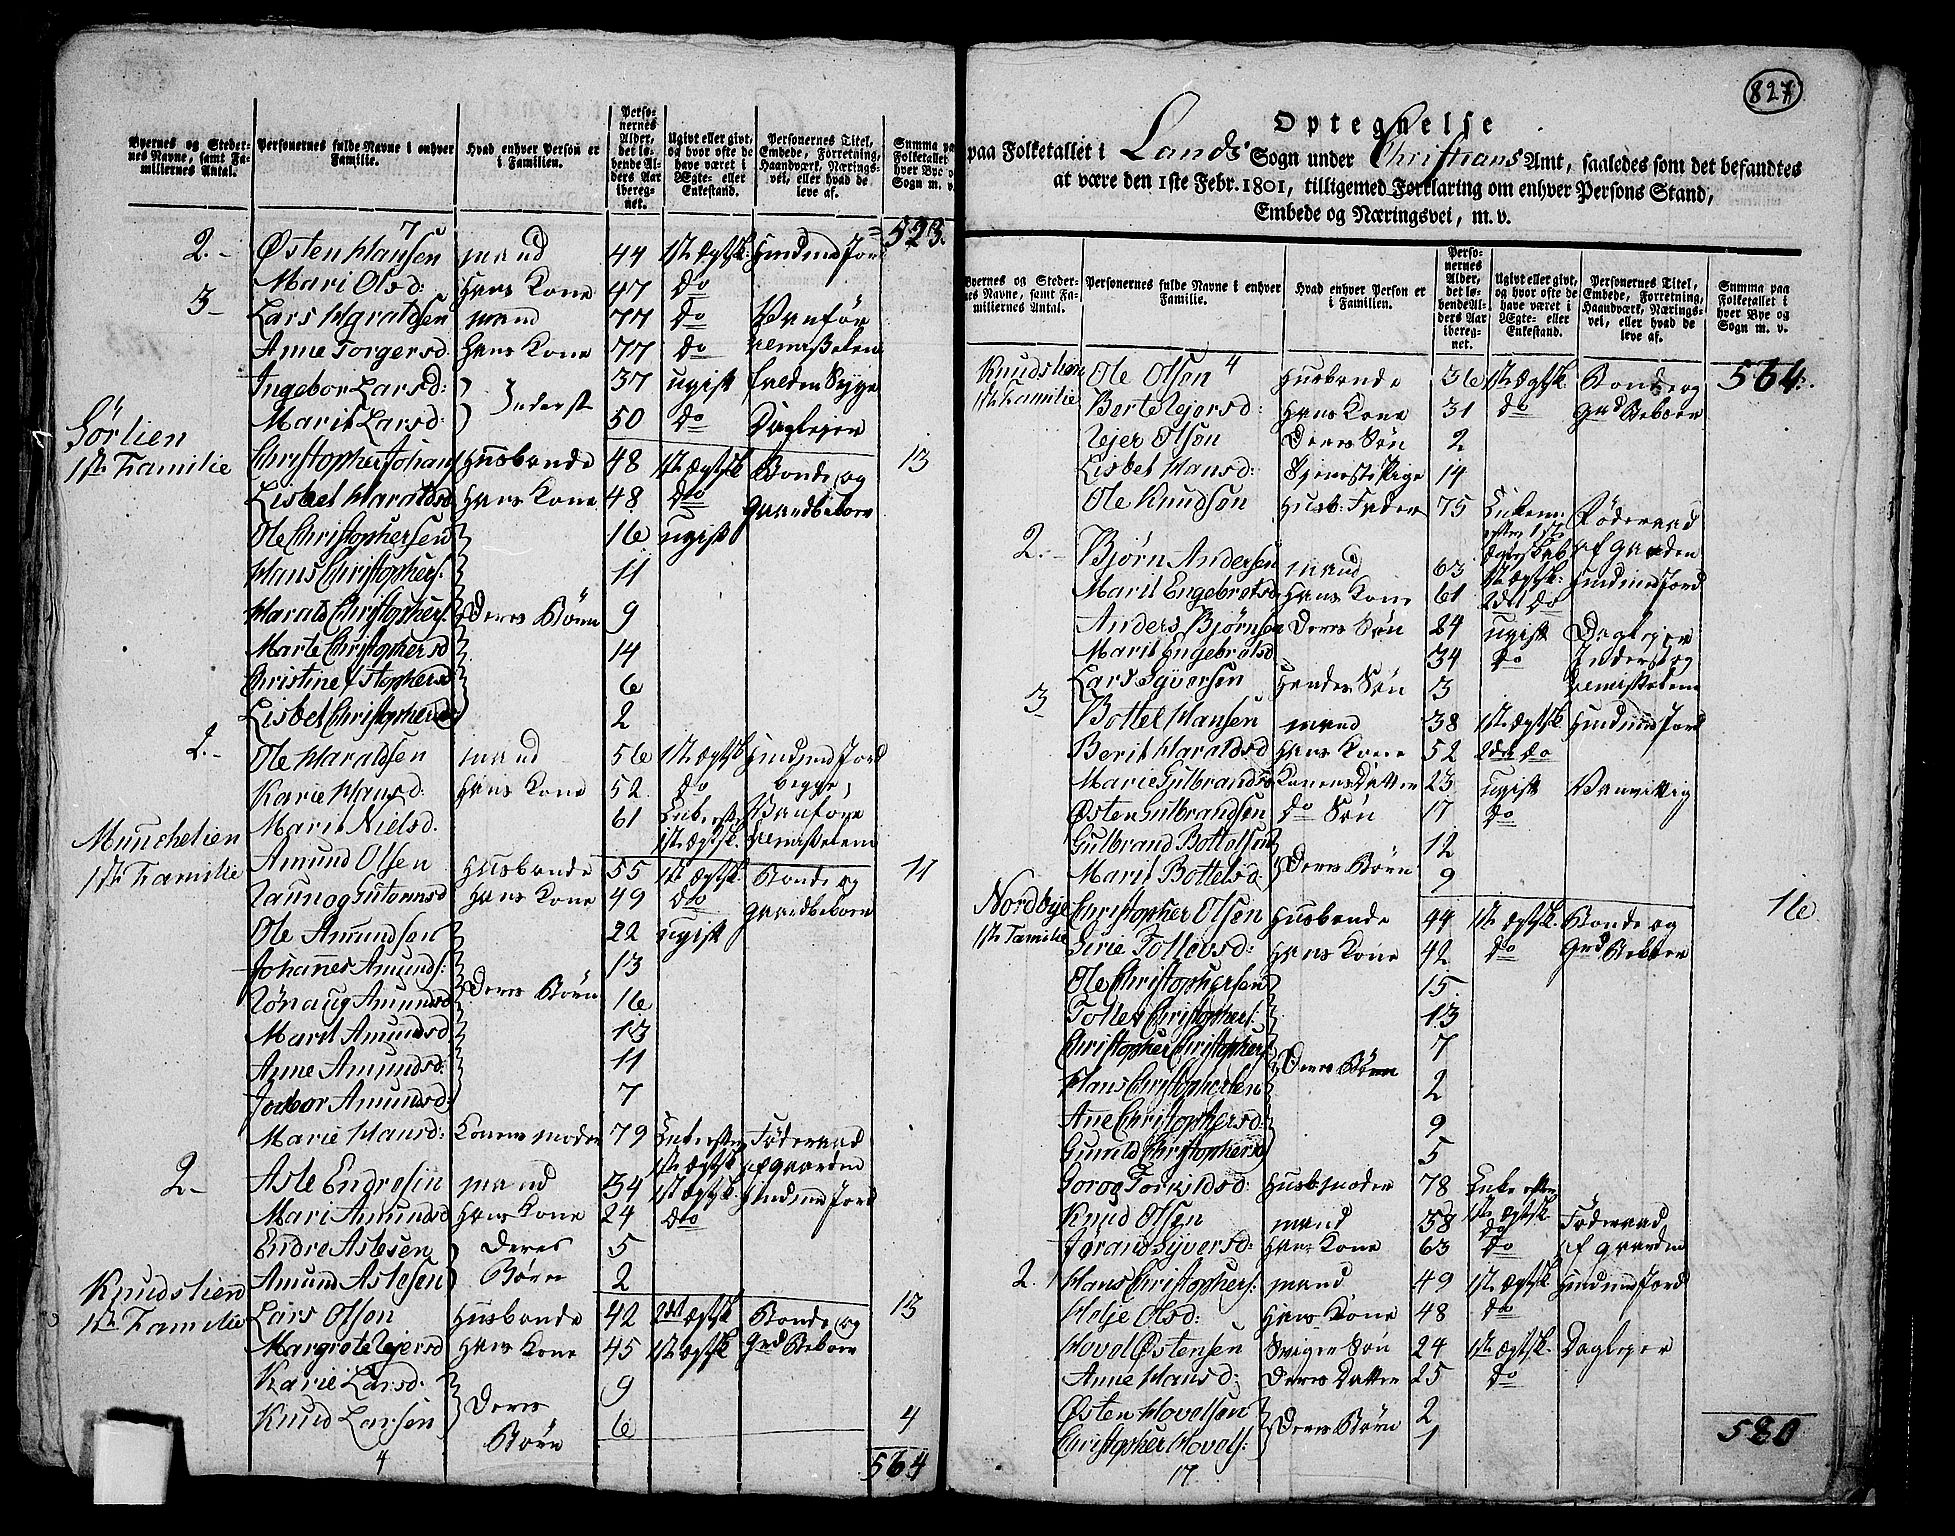 Byernes og Steder-
nes Navne, samt Fa-
miliernes Antal.
Personernes fulde Navne i enhver
Familie.
Hvad enhver Person er
i Familien.
Perso-
nernes
Alder,
det lø-
bende Al-
ders Aar
ibereg-
net.
Ugivt eller givt,
og hvor ofte de
have været i
Ægte- eller
Enkestand.
Personernes Titel,
Embede, Forretning,
Haandværk, Nærings-
vei, eller hvad de
leve af.
Summa paa
Folketallet
hver Bye o
Sogn m. v.
523.
2.- Østen Hansen mand 44 1ste Ægtsk: Huusmd Jord
Mari Olsd: Hans Kone 47 Do
3- Lars Haraldsen mand 77 Do Vanfør
Anne Torgersd. Hans Kone 77 Do
Ingebor Larsd: Inderst 37 ugift
Marit Larsd: 50 Do Daglejer
Sörlien
1ste Familie Christopher Johan Husbonde 48 1ste Ægtsk Bonde og 13
Lisbet Haraldsd Hans Kone 48 Do Gaardbeboer
Ole Christophersen 16 ugift
Hans Christophers: 11
Harald Christophers: Deres Börn 9
Marte Christophersd 14
Christine Christophersd 6
Lisbet Christophersd 2
2.- Ole Haraldsen mand 56 1ste Ægtsk Huusmd Jord
Karie Hansd: Hans Kone 52 Do begge
Marit Nielsd. 61 Enke efter Vanföre
1ste Ægtsk.
Munchelien
1ste Familie Amund Olsen Husbonde 55 1ste Ægtsk. Bonde og 11
Hans Kone 49 Do Gaardbeboer
Ole Amundsen 22 ugift
Johannes Amunds: 13
Rönaug Amundsd Deres Börn 16
Marit Amundsd 13
Anne Amundsd: 11
Amundsd: 7
Marie Hansd: Konens moder 79 Enke efter Föderaad
1ste Ægtsk af gaarden
2- Asle Endresen mand 34 1ste Ægtsk. Huusmd Jord
Mari Amundsd Hans Kone 24 Do
Endre Aslesen Deres 5
Amund Aslesen Börn 2
Knudslien
1ste Familie Lars Olsen Husbonde 42 2det Ægtsk Bonde og 13
Margrote Rejersd Hans Kone 45 1ste Ægtsk Grd Beboer
Karie Larsd: Deres 9
Knud Larsen Börn 6 4
4
564
827
Optegnelse
paa Folketallet i Lands Sogn under Christians Amt, saaledes som det befandtes
at være den 1ste Febr. 1801, tilligemed Forklaring om enhver Persons Stand,
Embede og Næringsvei, m. v.
Byernes og Steder-
nes Navne, samt Fa-
miliernes Antal.
Personernes fulde Navne i enhver
Familie.
Hvad enhver Person er
i Familien.
Perso-
nernes
Alder,
det lø-
bende Al-
ders Aar
ibereg-
net.
Ugivt eller givt,
og hvor ofte de
have været i
Ægte- eller
Enkestand.
Personernes Titel,
Embede, Forretning,
Haandværk, Nærings-
vei, eller hvad de
leve af.
Summa paa
Folketallet i
hver Bye og
Sogn m. v.
Knudslien Ole Olsen Husbonde 36 1ste Ægtsk Bonde og 564.
1ste Familie Berte Rejersd: Hans Kone 31 Do Grd Beboer
Rejer Olsen Deres Sön 2
Lisbet Hansd: Tjeneste Pige 14
Ole Knudsön Husb: Fader 75 Enkem: Föderaad
efter 1ste Ægteskab af gaarden
2.- Bjørn Andersen mand 63 1ste Ægtsk: Huusmd Jord
Marit Engebretsd Hans Kone 61 2det Do
Anders Bjørnsen Deres Sön 24 ugift Daglejer
Marit Engebretsd 34 Do Inderst og
Lars Syversen Hendes Sön 3
3- Bottel Hansen mand 38 1ste Ægtsk Huusmd Jord
Berit Haraldsd Hans Kone 52 2det Do
Marie Gulbrandsd Konens Datter 23 ugift Vanvittig
Østen Gulbrandsen Do Sön 17 Do
Gulbrand Bottelsen Deres Börn 12
Marit Bottelsd: 9
Nordbye Christopher Olsen Husbonde 44 1ste Ægtsk. Bonde og 16
1ste Familie Sirie Tollevsd: Hans Kone 42 Do Grd Beboer
Ole Christophersen 15
Tollev Christophers: 13
Christopher Christophers: Deres Börn 7
Hans Christophersen 2
Ane Christophersd: 9
Gunild Christophersd 5
Husb: moder 78 Enke efter
1ste Ægtsk
Knud Olsen mand 58 Do Föderaad
Jøran Syversd: Hans Kone 63 Do af gaarden
2. Hans Christophers: mand 49 1ste Ægtsk. Huusmd Jord
Helje Olsd: Hans Kone 48 Do
Hovel Østensen Sviger Sön 24 1ste Ægtsk. Daglejer
Anne Hansd: Deres Datter 25 Do
Østen Hovelsen Deres Börn 2
Christopher Hovels: 1
17
580